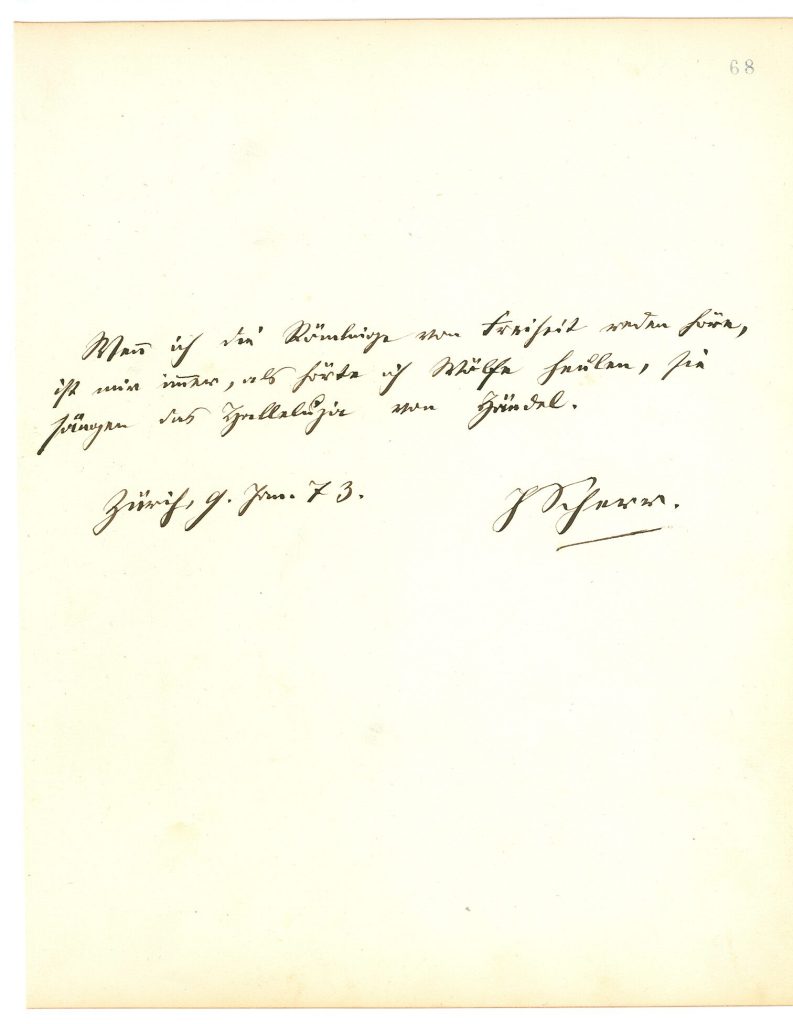 68
Wen̄ ich die Römlinge von Freiheit reden höre,
ist mir im̄er, als hörte ich Wölfe heulen, sie
sängen das Halleluja von Händel.
Zürich, 9. Jan. 73. J Scherr.